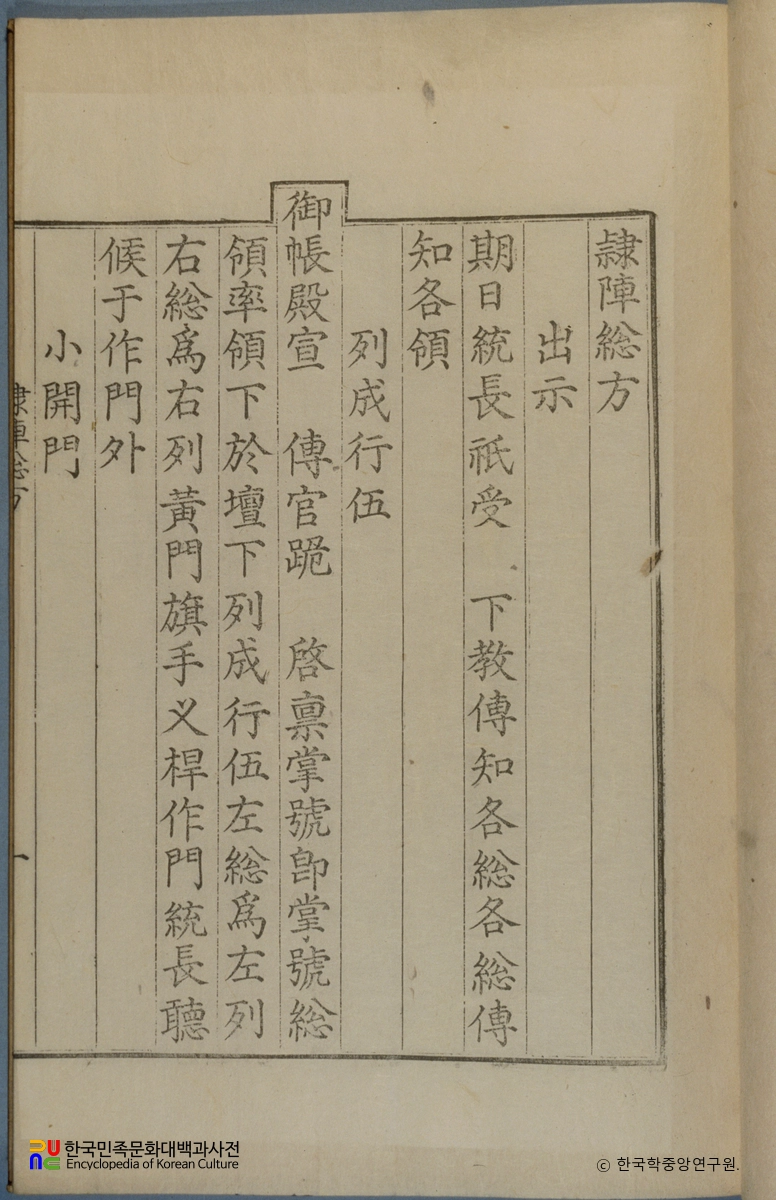 隷陣総方
出示
期日統長祇受 下教傳知各総各総傳
知各領
列成行伍
御帳殿宣 傳官跪 啓稟掌號卽掌號総
領率領下於壇下列成行伍左総爲左列
右総爲右列黃門旗手义桿作門統長聽
候于作門外
小開門
隷陣総方
一
한국민족문화대백과사전
Encyclopedia of Korean Culture
ⓒ 한국학중앙연구원.